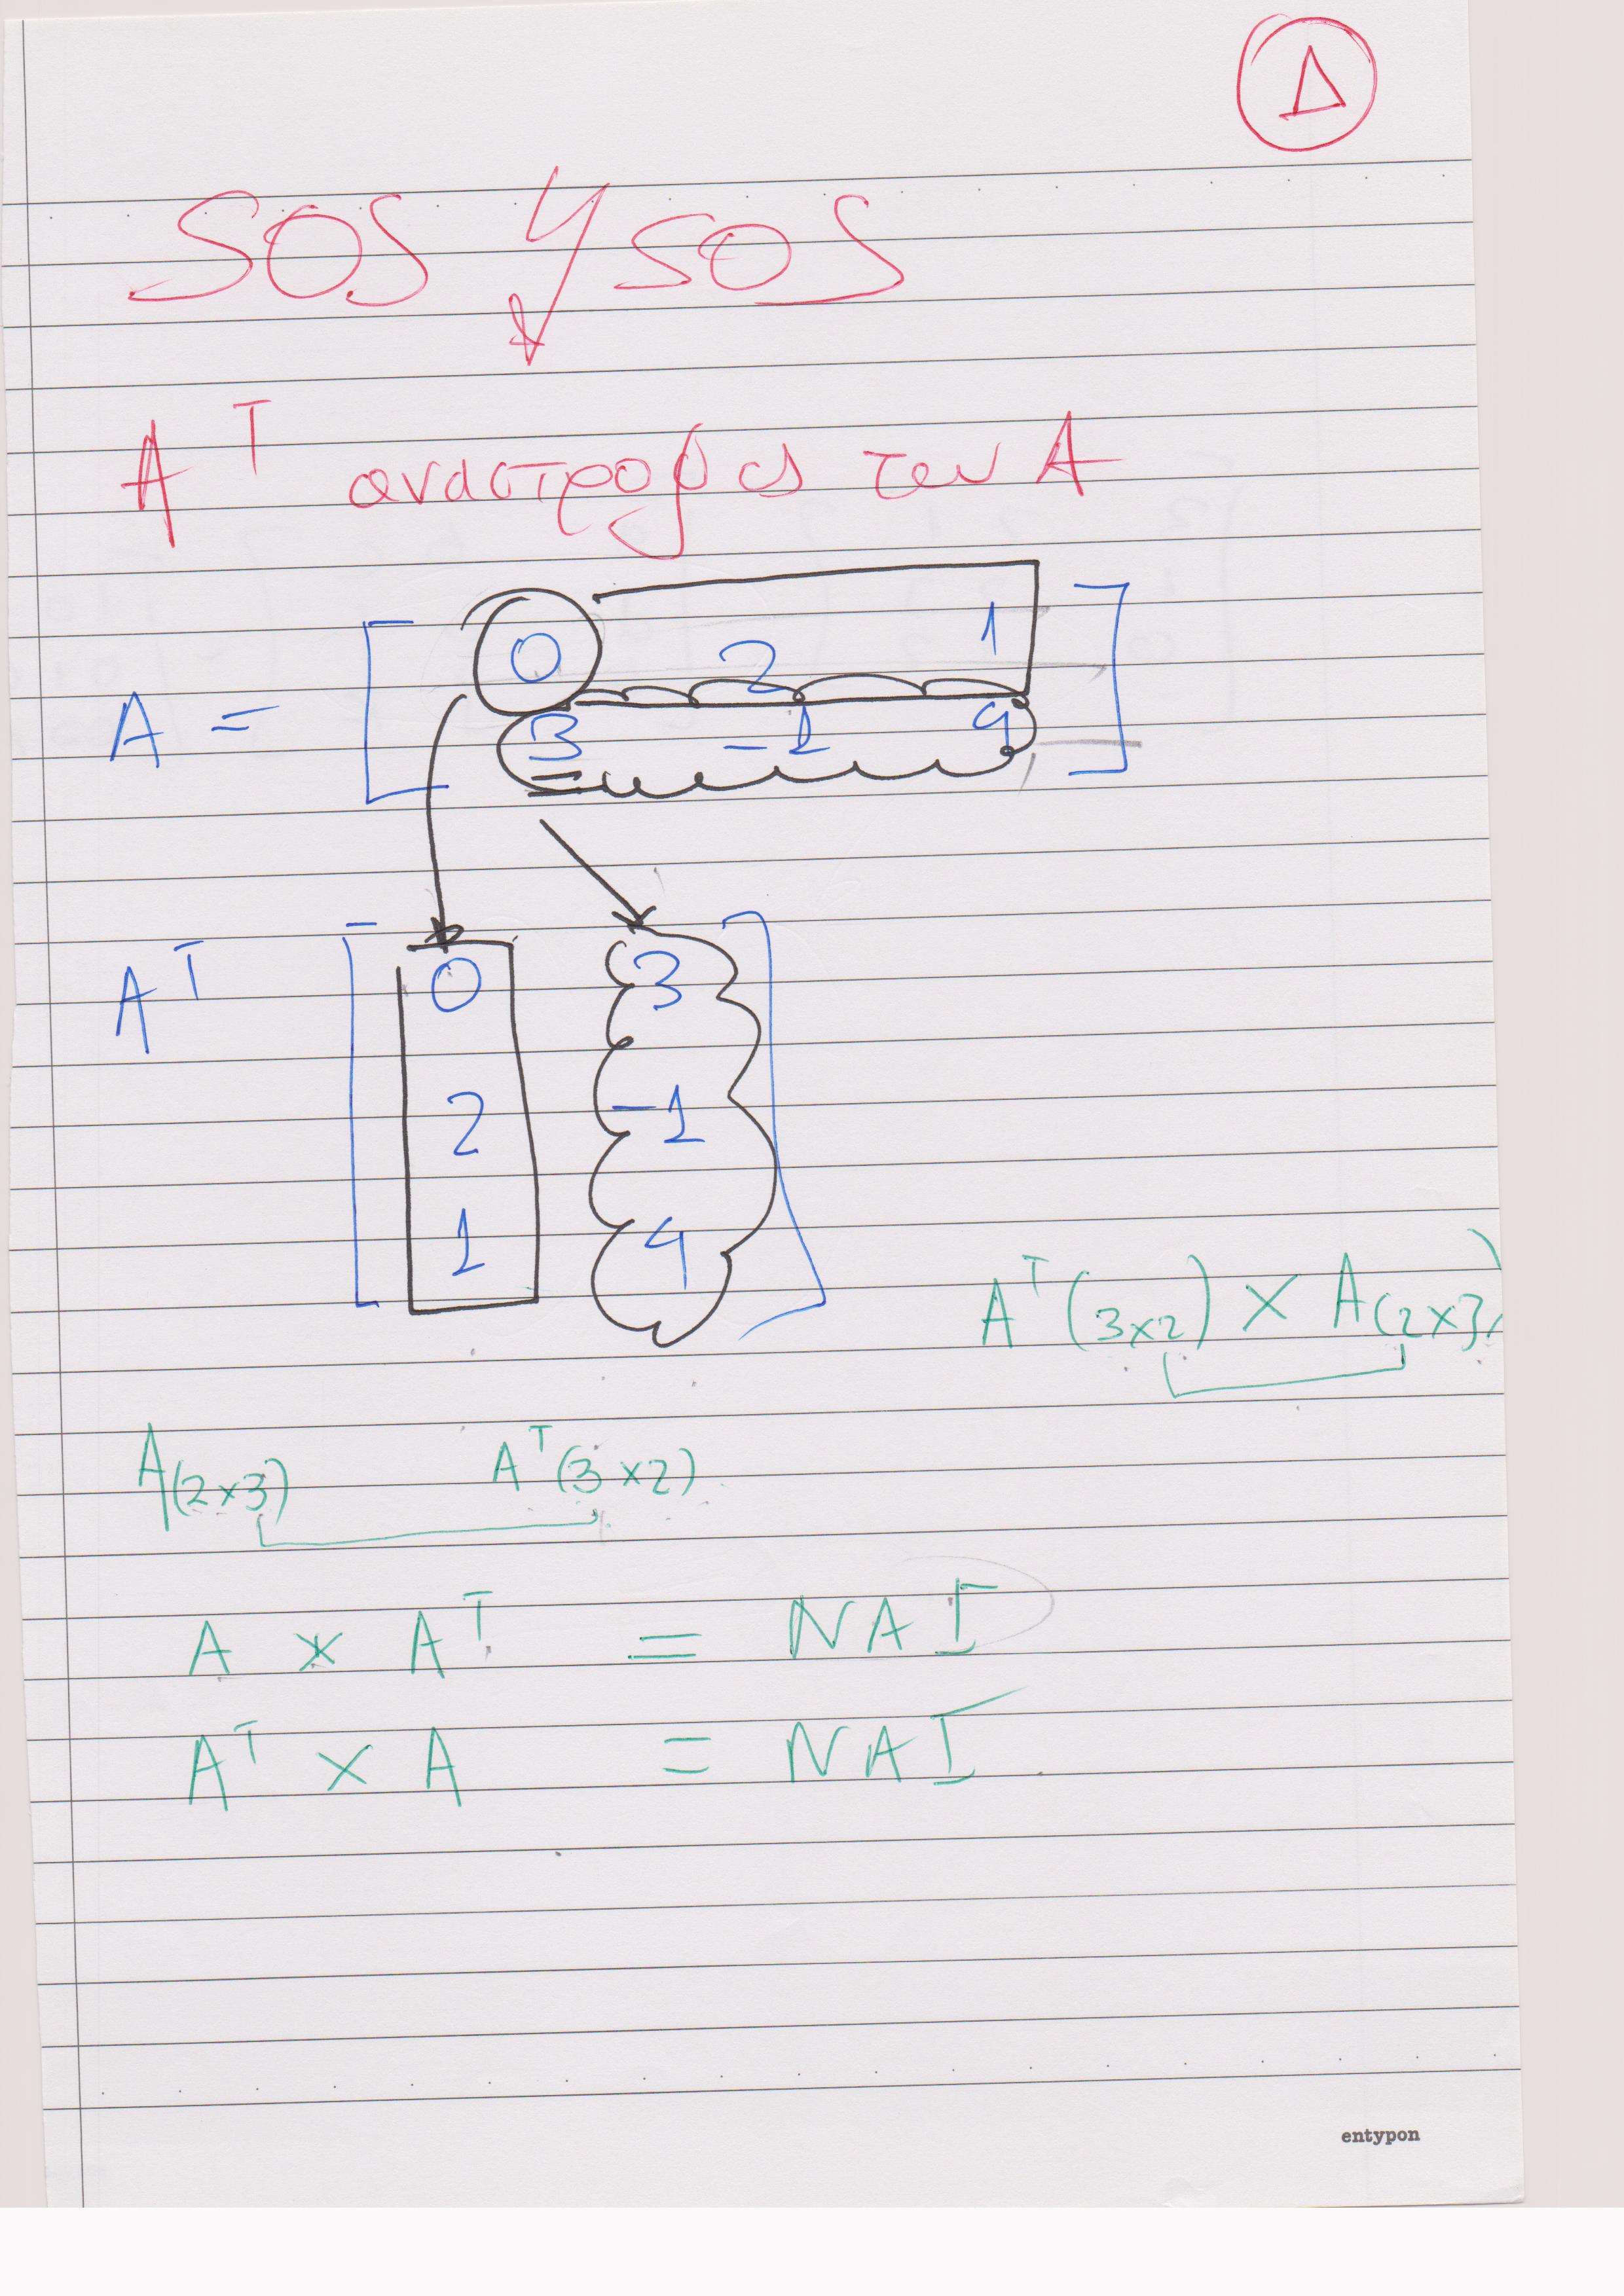 Δ
SOS SOS
Aᵀ αναστροφος του A
A = [ 0 2 1
3 -1 4 ]
Aᵀ [ 0 3
2 -1
1 4 ]
Aᵀ(3x2) x A(2x3)
A(2x3) Aᵀ(3x2)
A x Aᵀ = ΝΑΙ
Aᵀ x A = ΝΑΙ
entypon